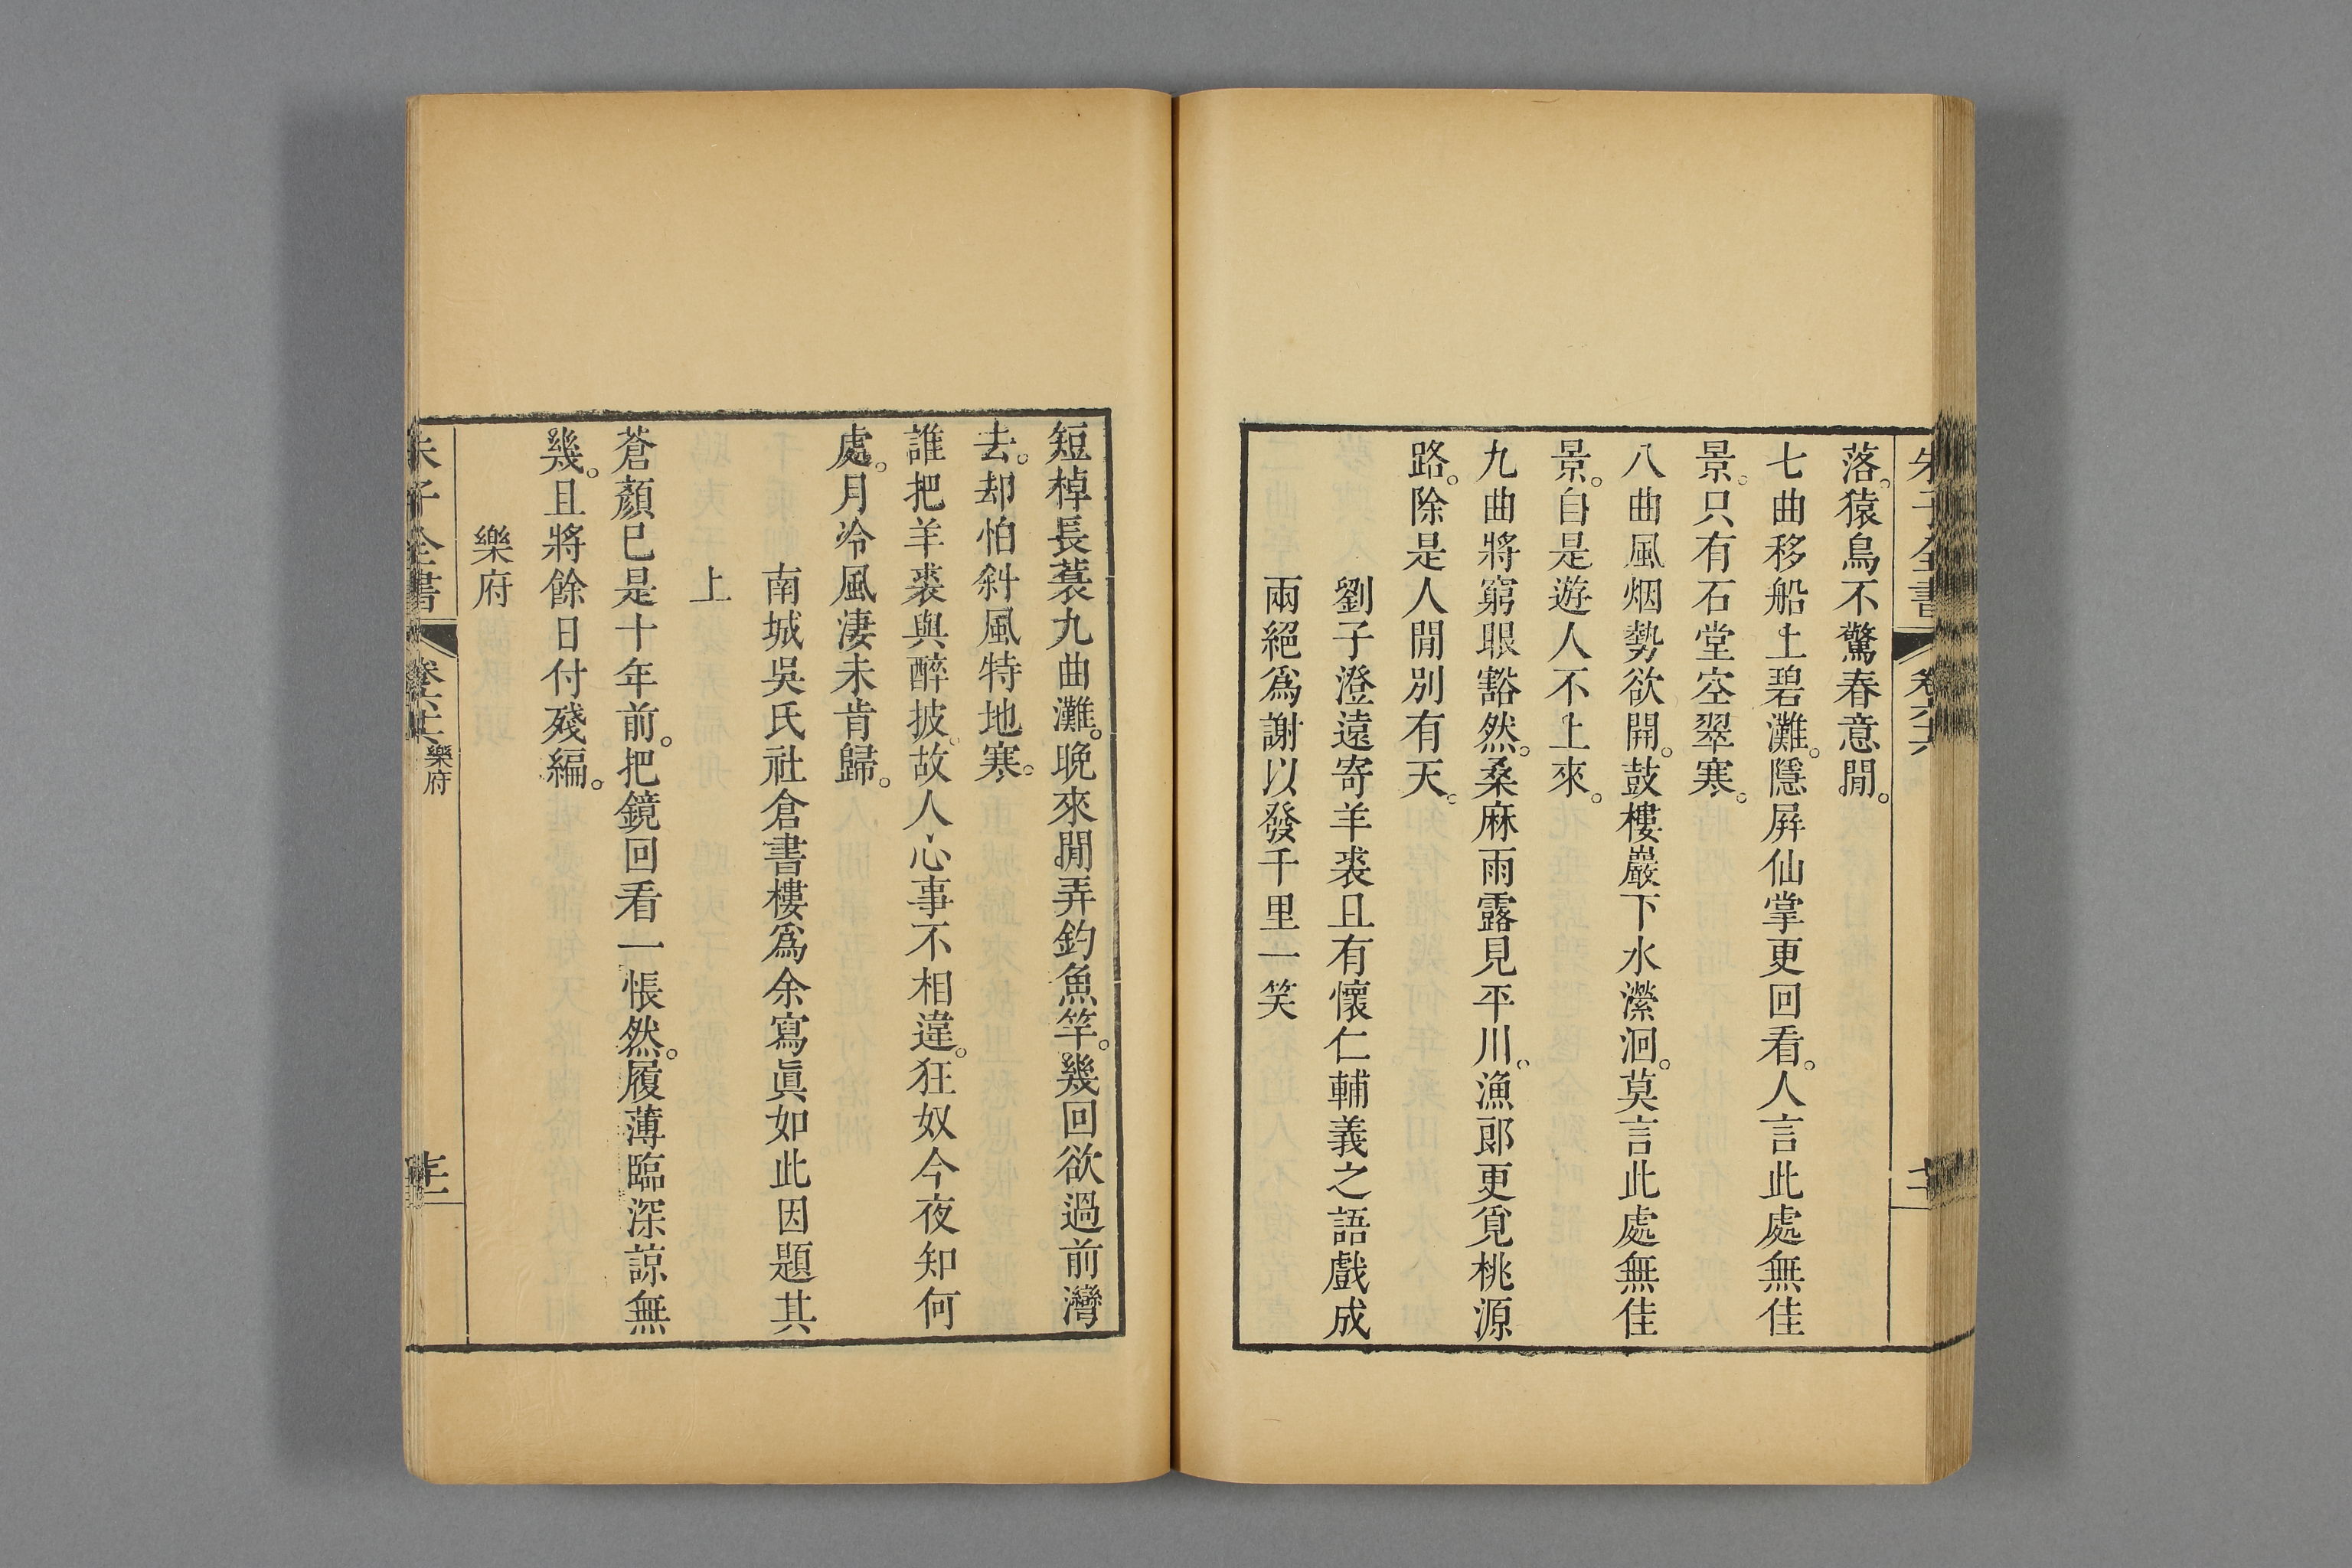 朱子全書 卷六十六
落。猿鳥不驚春意閒。
七曲移船上碧灘。隱屛仙掌更回看。人言此處無佳
景。只有石堂空翠寒。
八曲風烟勢欲開。鼓樓巖下水瀠洄。莫言此處無佳
景。自是遊人不上來。
九曲將窮眼豁然。桑麻雨露見平川。漁郎更覓桃源
路。除是人閒別有天。
劉子澄遠寄羊裘且有懷仁輔義之語戲成
兩絕爲謝以發千里一笑
短棹長蓑九曲灘。晚來閒弄釣魚竿。幾回欲過前灣
去。却怕斜風特地寒。
誰把羊裘與醉披。故人心事不相違。狂奴今夜知何
處。月冷風淒未肯歸。
南城吳氏社倉書樓爲余寫眞如此因題其
上
蒼顏已是十年前。把鏡回看一悵然。履薄臨深諒無
幾。且將餘日付殘編。
樂府
朱子全書 卷六十六 樂府